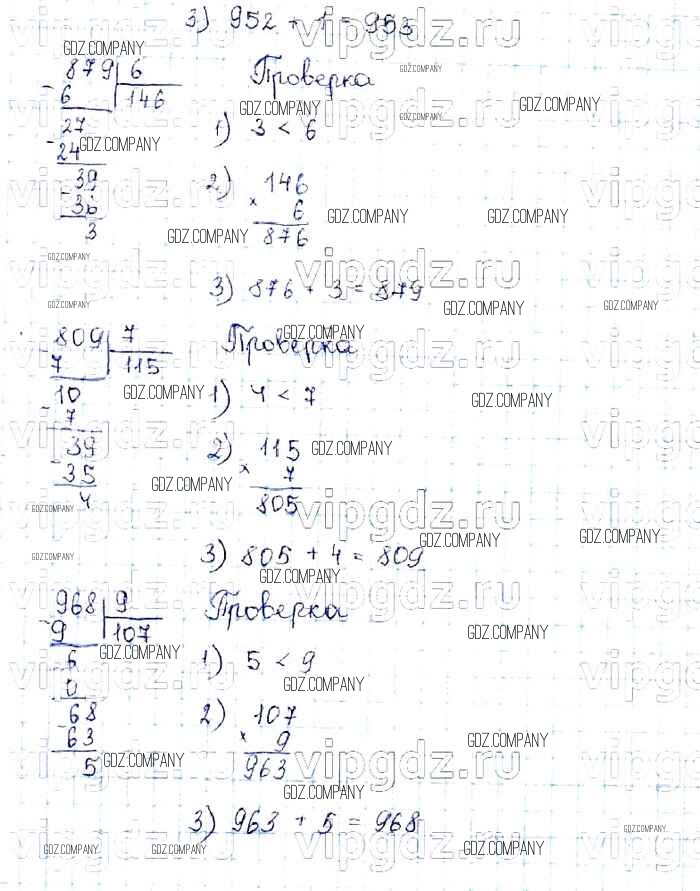 3) 952 + 1 = 953
879 | 6
- 6 | 146
27
- 24
39
- 36
3
Проверка
1) 3 < 6
2) 146
× 6
876
3) 876 + 3 = 879
809 | 7
- 7 | 115
10
- 7
39
- 35
4
Проверка
1) 4 < 7
2) 115
× 7
805
3) 805 + 4 = 809
968 | 9
- 9 | 107
6
- 0
68
- 63
5
Проверка
1) 5 < 9
2) 107
× 9
963
3) 963 + 5 = 968
vipgdz.ru
GDZ.COMPANY